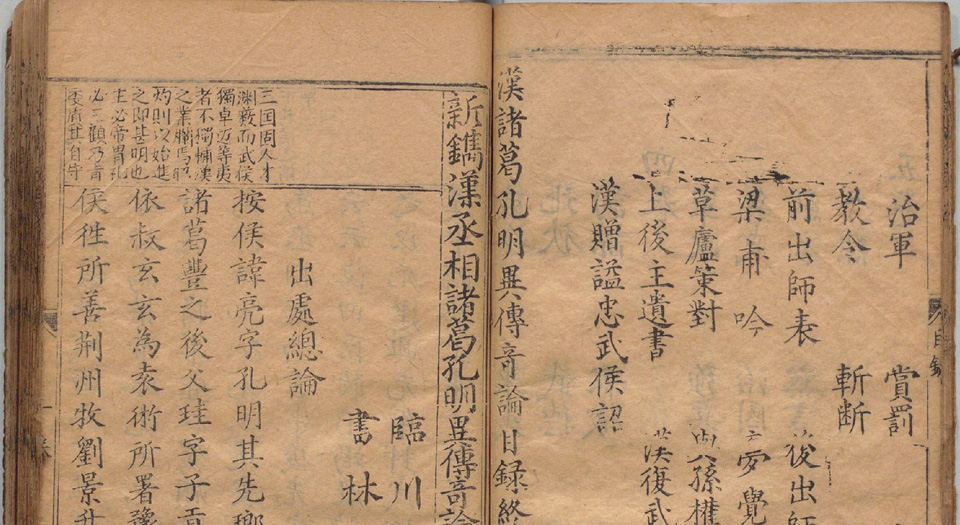 治軍 賞罰
教令 斬断
前出師表 後出師
梁甫吟 夢覺
草廬策對 與孫權
上後主遺書 漢復武
漢贈謚忠武侯詔
漢諸葛孔明異傳奇論目録終
目録
新鐫漢丞相諸葛孔明異傳奇論
臨川
書林
出處總論
按侯諱亮字孔明其先瑯
諸葛豐之後父珪字子貢
依叔玄玄為袁術所署豫
侯徃所善荆州牧劉景升
三国間人才
渊藪而武侯
獨卓迈等夷
者不獨慵漢
之業
灼則以始進
之即甚明也
主必帝胄孔
必三顧乃言
委質其自守